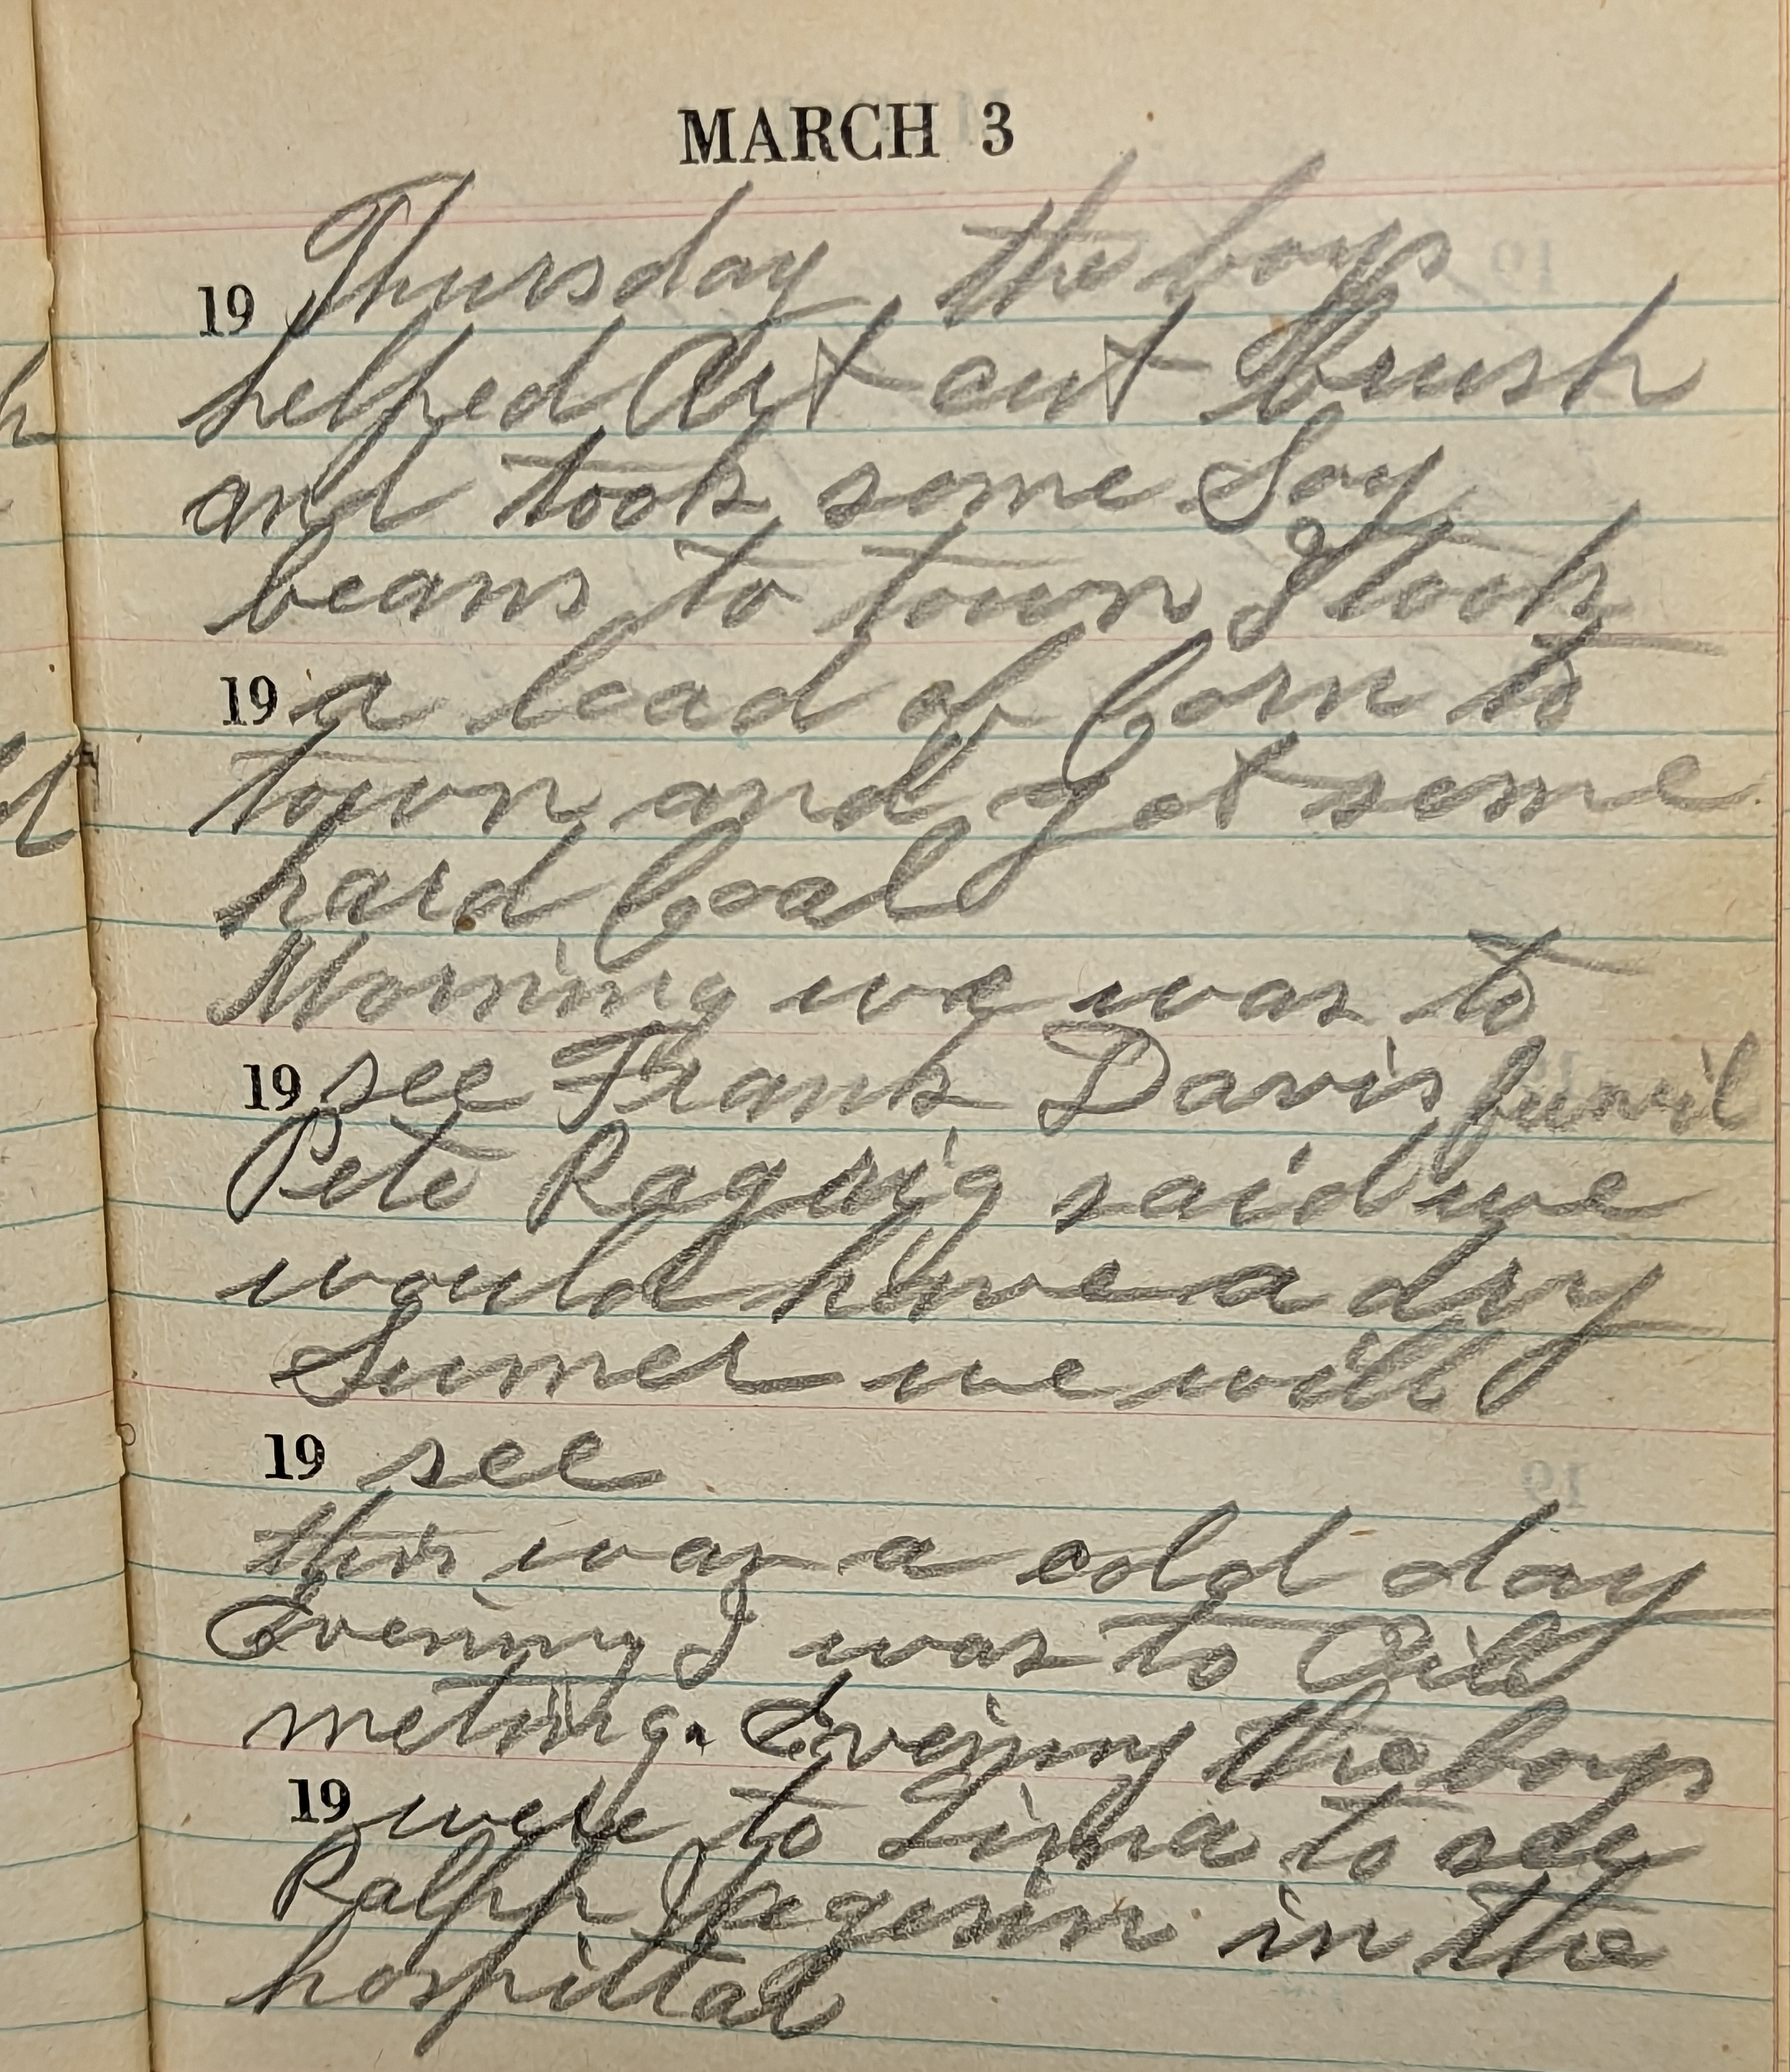 MARCH 3
19 Thursday the boys
helped Art cut brush
and took some Soy
beans to town I took
19 a load of Corn to
town and got some
hard Coal
Morning we was to
19 see Frank Davis funril
Pete said we
would have a dry
Sumer we will
19 see
this was a cold day
Evening I was to Oil
meting. Evening the boys
19 were to Lima to see
Ralph in the
hospittal